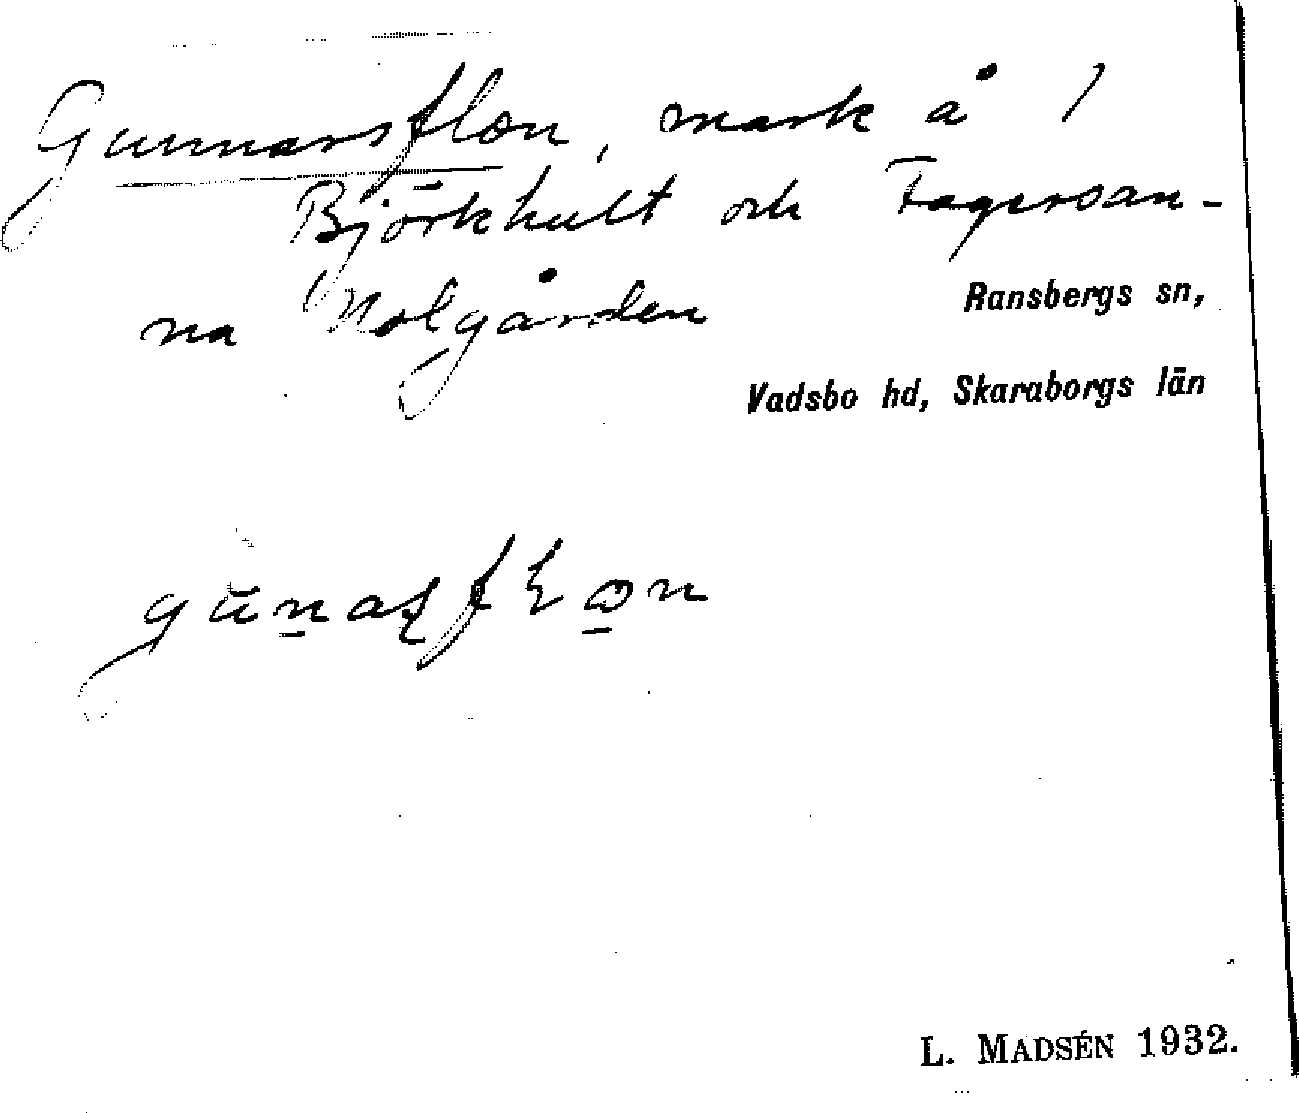 Gunnarsflon, mark å 1
Björkhult och Fagersan-
na Nolgården
Ransbergs sn,
Vadsbo hd, Skaraborgs län
L. MADSÉN 1932.